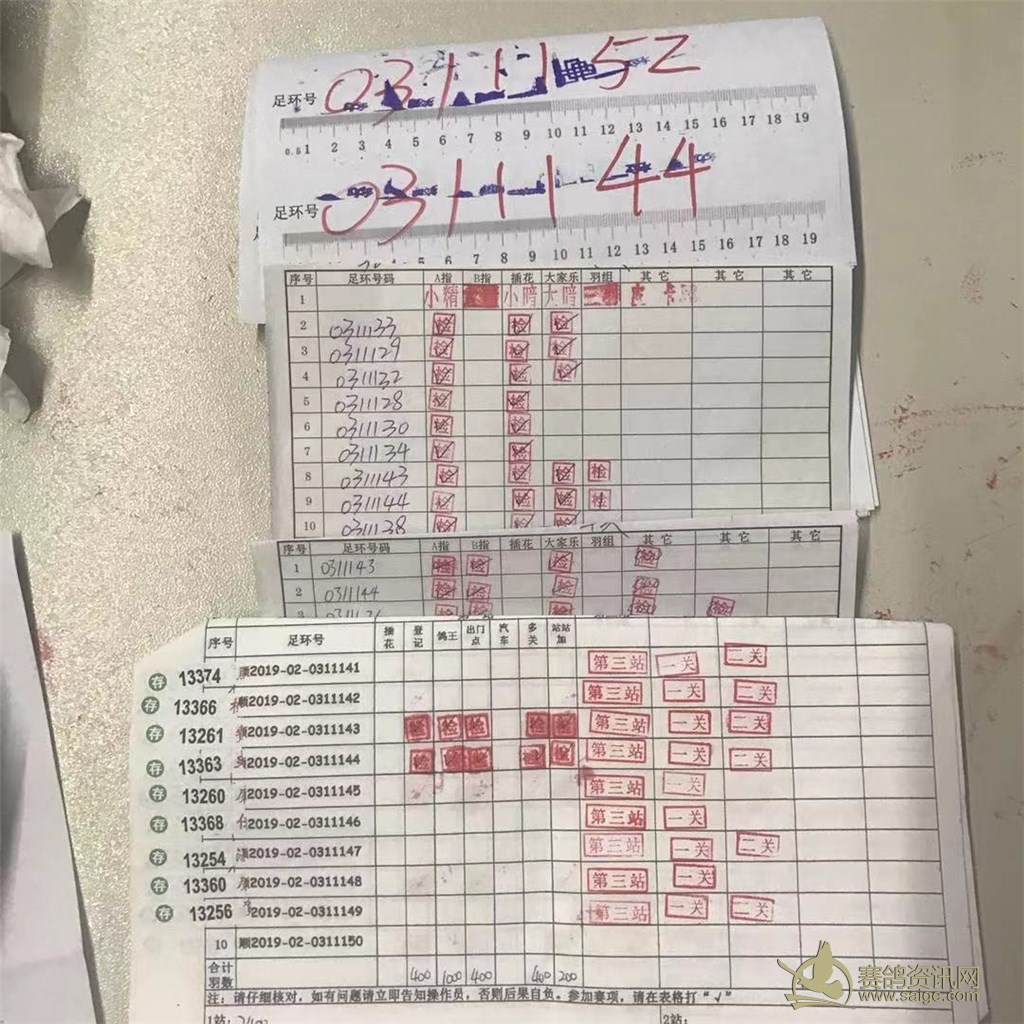 足环号 03111152
0.5 1 2 3 4 5 6 7 8 9 10 11 12 13 14 15 16 17 18 19
足环号 0311144
5 6 7 8 9 10 11 12 13 14 15 16 17 18 19
序号 足环号码 A指 B指 插花 大家乐 羽组 其它 其它 其它
1 小精 小暗 大暗
2 0311133 检 检 检
3 0311129 检 检 检
4 0311132 检 检 检
5 0311128 检 检
6 0311130 检 检
7 0311134 检 检
8 0311143 检 检 检 检
9 0311144 检 检 检 检
10 0311138 检 检 检
序号 足环号码 A指 B指 插花 大家乐 羽组 其它 其它 其它
1 0311143 检 检 检 检
2 0311144 检 检 检 检
3 检 检 检 检 检
序号 足环号 插花 登记 鸽王 出门点 汽车 多关 站站加
存 13374 顺2019-02-0311141 第三站 一关 二关
存 13366 顺2019-02-0311142 第三站 一关 二关
存 13261 2019-02-0311143 检 检 检 检 检 第三站 一关 二关
存 13363 2019-02-0311144 检 检 检 检 检 第三站 一关 二关
存 13260 2019-02-0311145 第三站 一关
存 13368 2019-02-0311146 第三站 一关
存 13254 2019-02-0311147 第三站 一关 二关
存 13360 2019-02-0311148 第三站 一关
存 13256 2019-02-0311149 第三站 一关 二关
10 顺2019-02-0311150
合计羽数 400 1000 400 400 200
注：请仔细核对，如有问题请立即告知操作员，否则后果自负。参加赛项，请在表格打“√”
1站： 2站：
赛鸽资讯网
www.saigc.com